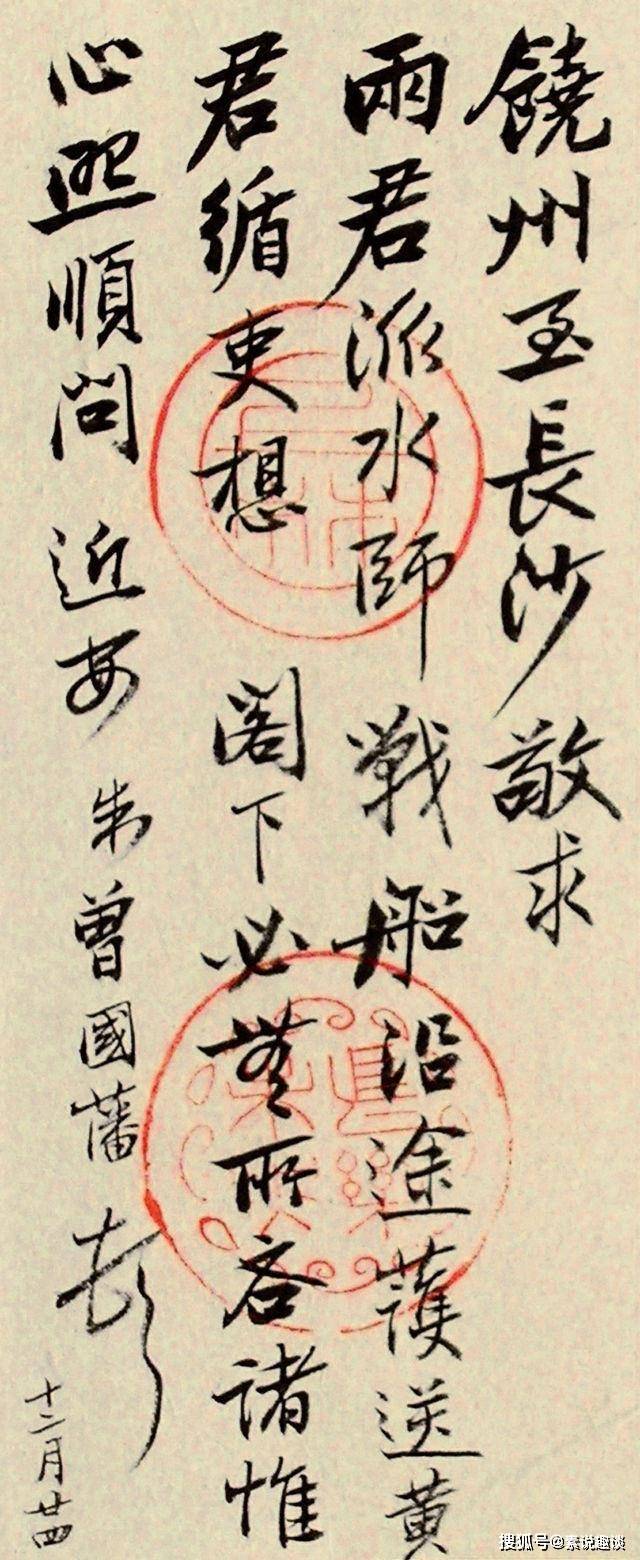 饒州至長沙敬求
兩君派水師戰船沿途護送黃
君循吏想 閣下必無所吝諸惟
心照順問 近安 朱曾國藩
十二月廿四
搜狐号@素说趣谈